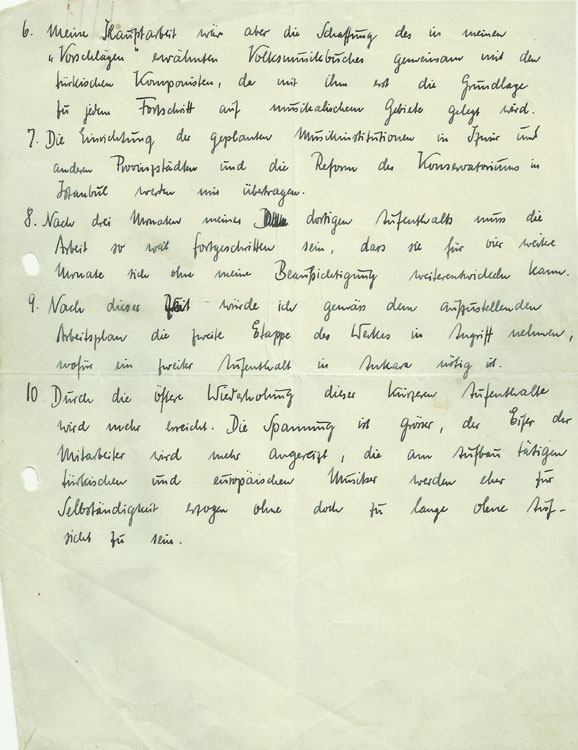 6. Meine Hauptarbeit wär aber die Schaffung des in meinen
"Vorschlägen" erwähnten Volksmusikbuches gemeinsam mit den
türkischen Komponisten, da mit ihm erst die Grundlage
zu jedem Fortschritt auf musikalischem Gebiete gelegt wird.
7. Die Einrichtung der geplanten Musikinstitutionen in Izmir und
anderen Provinzstädten und die Reform des Konservatoriums in
Istanbul werden mir übertragen.
8. Nach drei Monaten meines dortigen Aufenthalts muss die
Arbeit so weit fortgeschritten sein, dass sie für vier weitere
Monate sich ohne meine Beaufsichtigung weiterentwickeln kann.
9. Nach dieser Zeit würde ich gemäss dem aufzustellenden
Arbeitsplan die zweite Etappe des Werkes in Angriff nehmen,
wofür ein zweiter Aufenthalt in Ankara nötig ist.
10. Durch die öftere Wiederholung dieser kürzeren Aufenthalte
wird mehr erreicht. Die Spannung ist grösser, der Eifer der
Mitarbeiter wird mehr angereizt, die am Aufbau tätigen
türkischen und europäischen Musiker werden eher zur
Selbständigkeit erzogen ohne doch zu lange ohne Auf-
sicht zu sein.